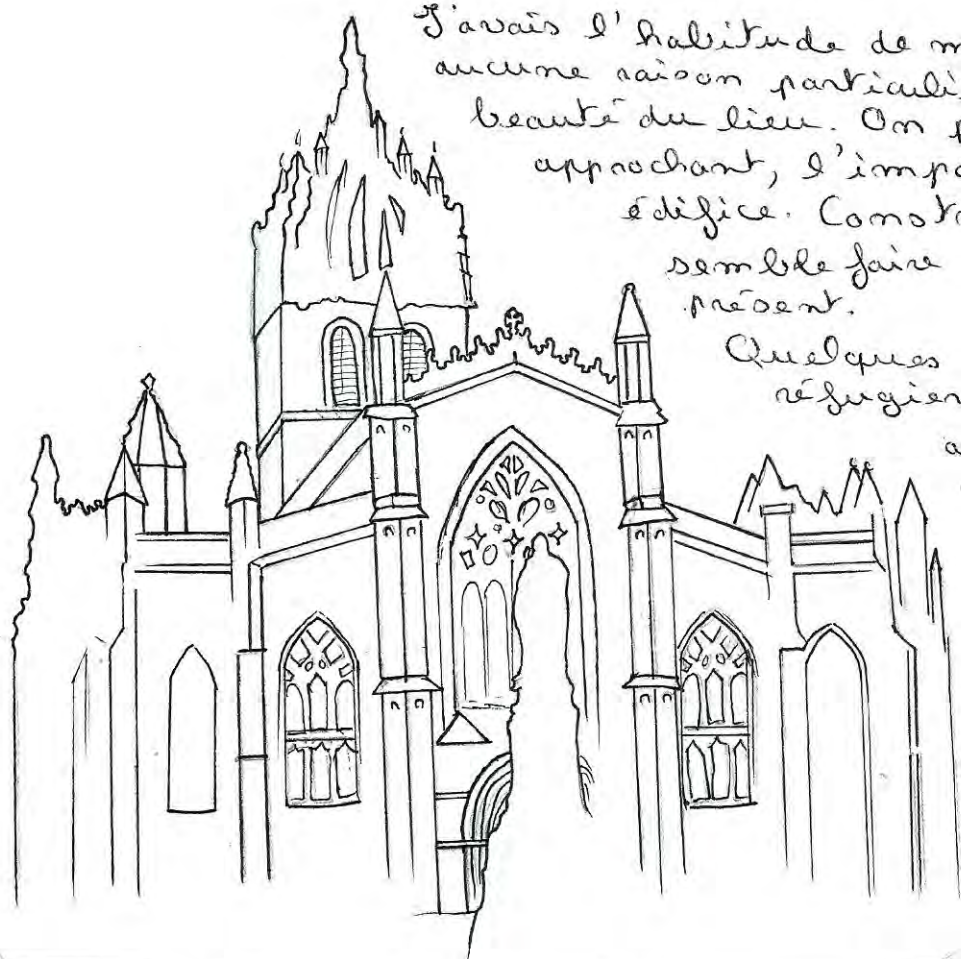 J'avais l'habitude de m
aucune raison particuli
beauté du lieu. On p
approchant, l'impo
édifice. Constr
semble faire
présent.
Quelques
réfugier
a